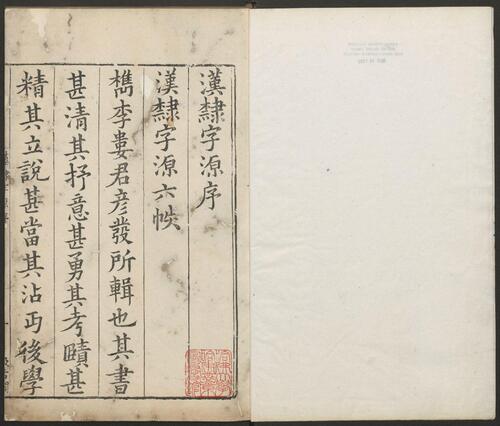 漢隸字源序
漢隸字源六帙
檇李婁君彦發所輯也其書
甚清其抒意甚勇其考賾甚
精其立說甚當其沾丏後學